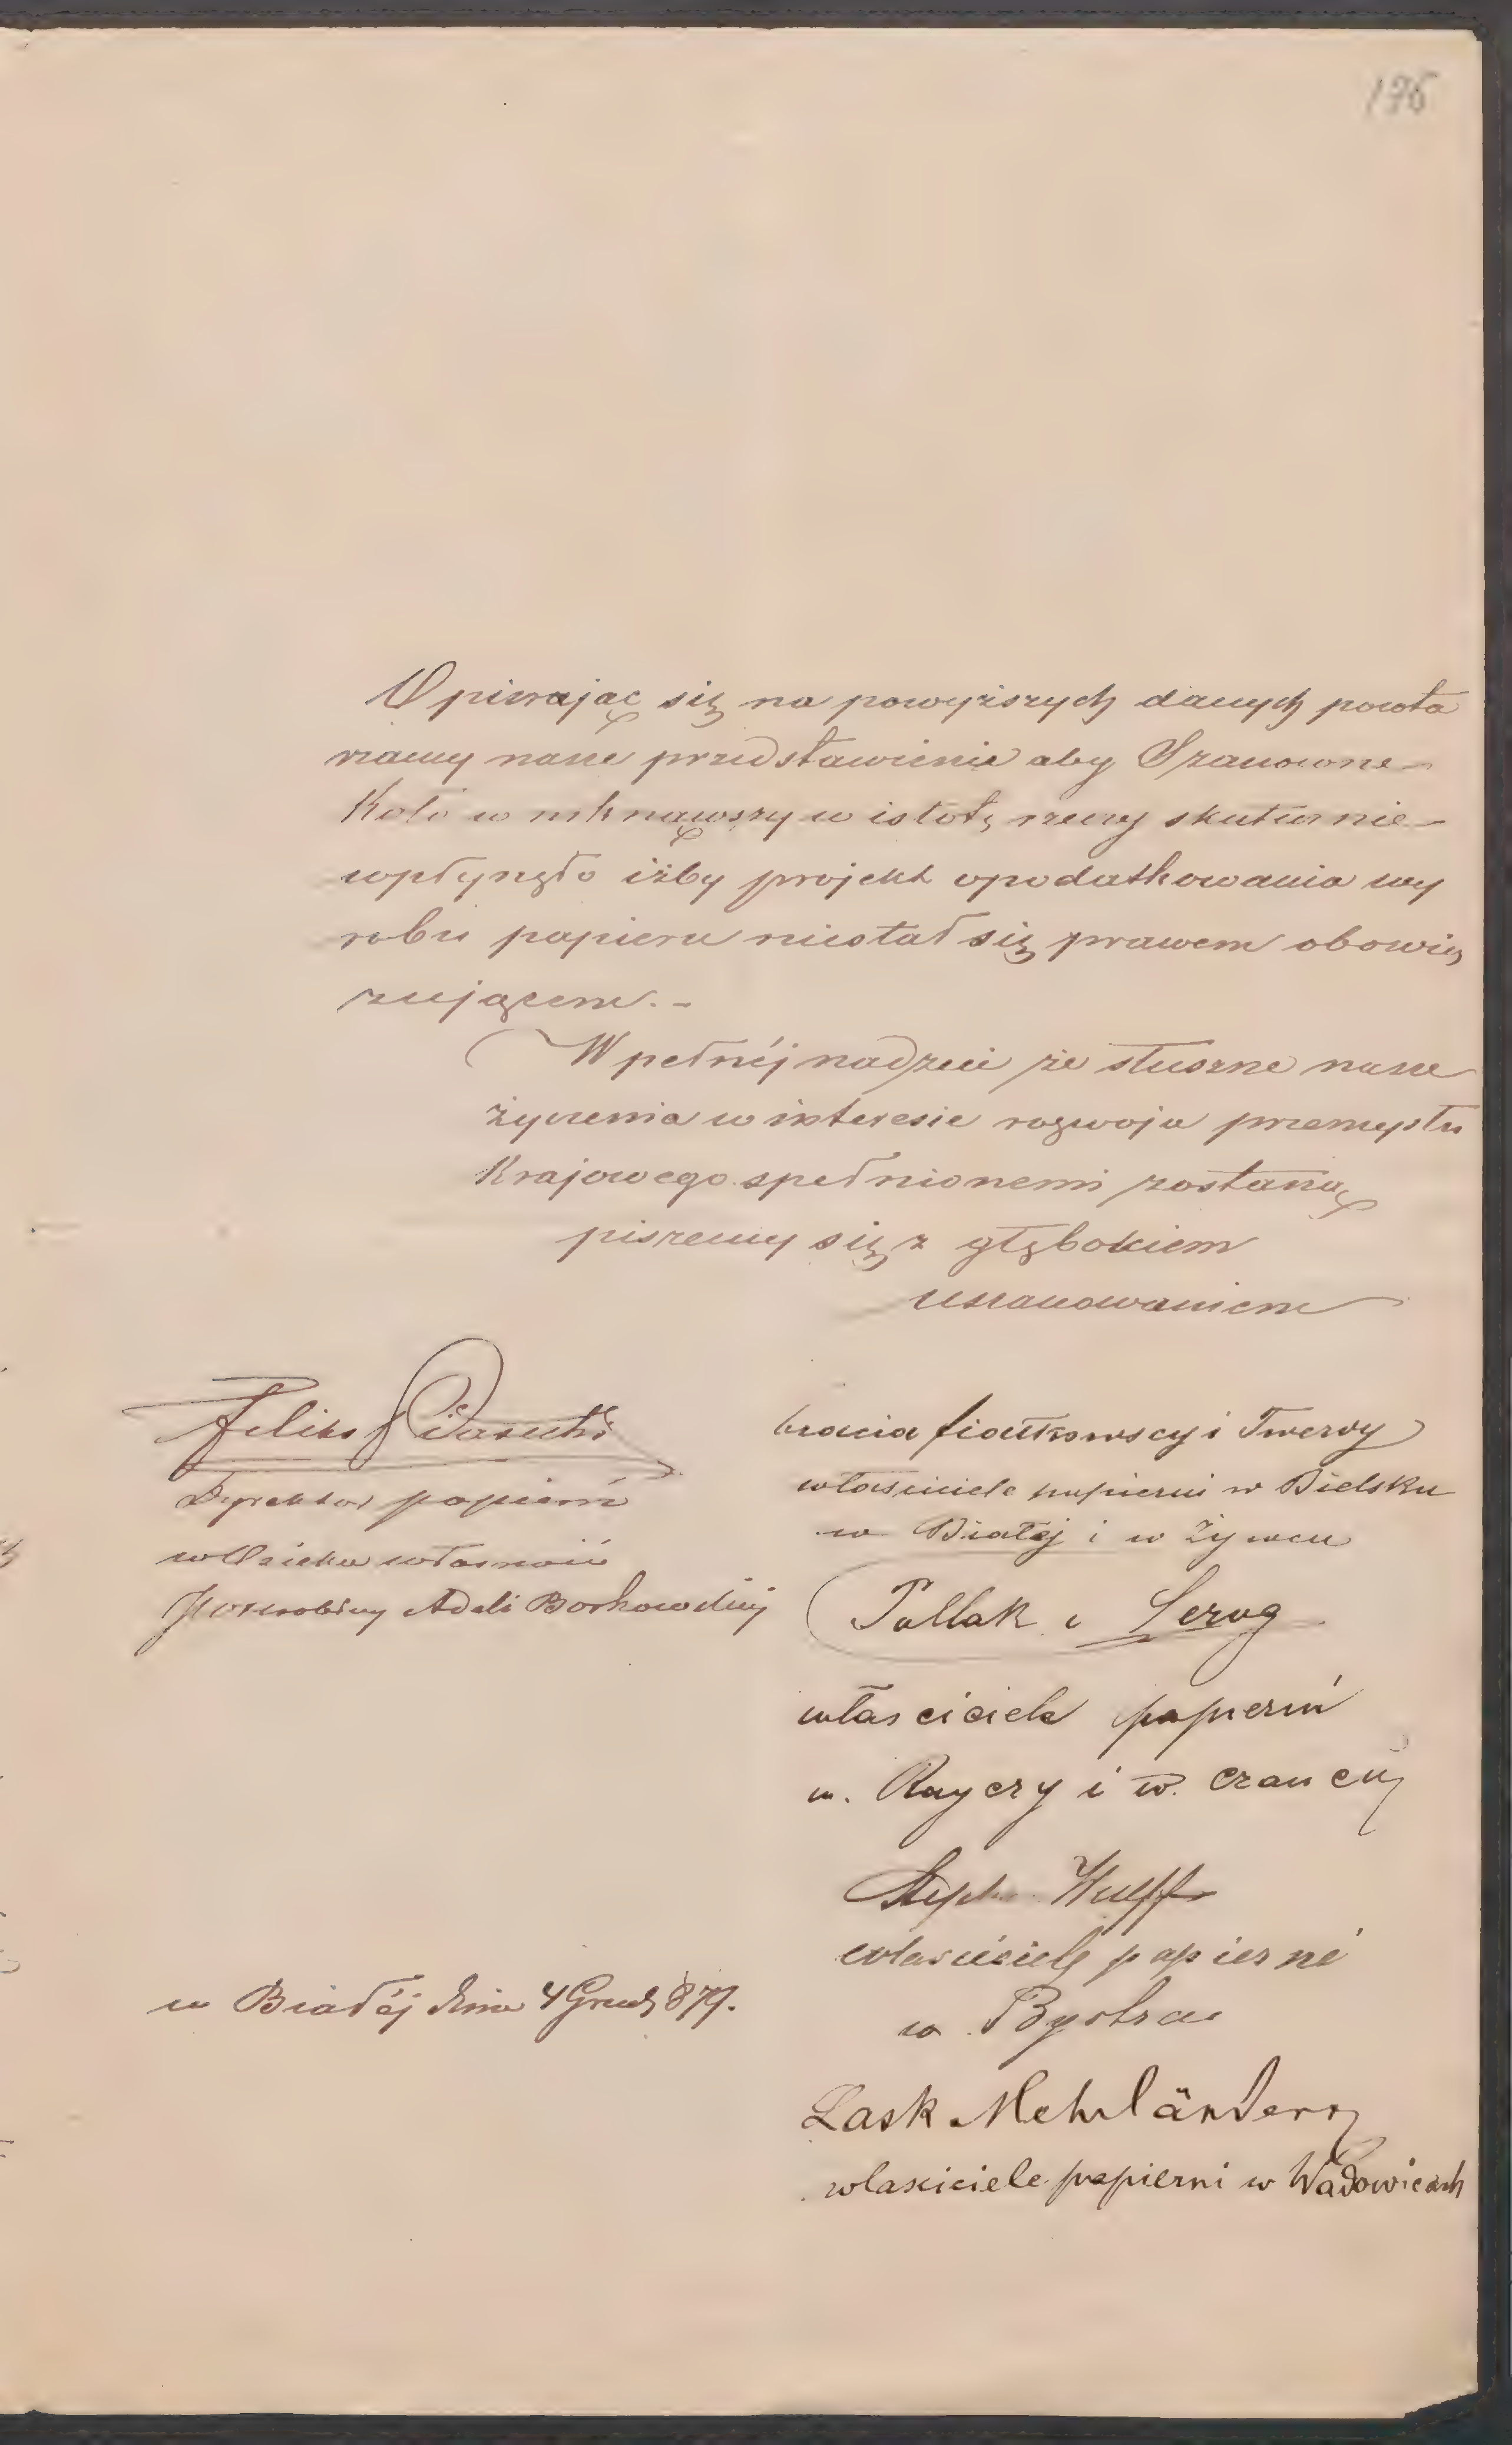 176
Opierając się na powyższych danych powta
rzamy nasze przedstawienie aby Szanowne
Koło wniknąwszy w istotę rzeczy skutecznie
wpłynęło iżby projekt opodatkowania wy
robu papieru niestał się prawem obowią
zującem. -
W pełnéj nadzieii że słuszne nasze
życzenia w interesie rozwoju przemysłu
Krajowego spełnionemi zostaną
piszemy się z głębokiem
uszanowaniem
Feliks
Dyrektor papierń
własność
Adeli Borkowskiéj
bracia fiałkowscy i Twerdy
właściciele papierni w Bielsku
w Białéj i w Żywcu
Pollak i
właściciele papierń
w. Raycry i w.
Wulff
właściciele papierni
w Bystra
w Białéj dnia 4 Grud 879.
Lask Mehrländer
wlasciciele papierni w Wadowicach